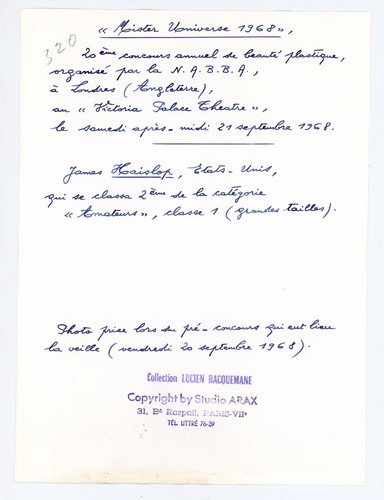 320
« Mister Universe 1968 »,
20ème concours annuel de beauté plastique,
organisé par la N.A.B.B.A.,
à Londres (Angleterre),
au « Victoria Palace Theatre »,
le samedi après-midi 21 septembre 1968.
James Haislop, Etats-Unis,
qui se classa 2ème de la catégorie
« Amateurs », classe 1 (grandes tailles).
Photo prise lors du pré-concours qui eut lieu
la veille (vendredi 20 septembre 1968).
Collection LUCIEN BACQUEMANE
Copyright by Studio ARAX
31, Bd Raspail, PARIS-VIIe
TÉL. LITTRÉ 76-39